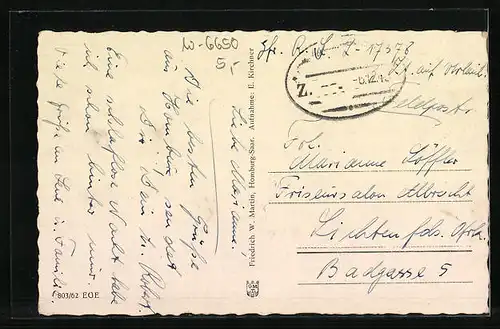 W-6650
5,-
Liebe Marianne!
Die besten Grüße
aus Homburg sendet
Dir Dein Robert.
Eine schlaflose Nacht habe
ich schon hinter mir.
Viele Grüße an Leni u. Familie.
803/62 EOE
Friedrich W. Martin, Homburg-Saar. Aufnahme: E. Kirchner
Z-17578
z.Zt. auf Urlaub.
Z.
Feldpost
Frl.
Marianne Löffler
Friseursalon Albrecht
Lichtenfels. Ofrk.
Badgasse 5